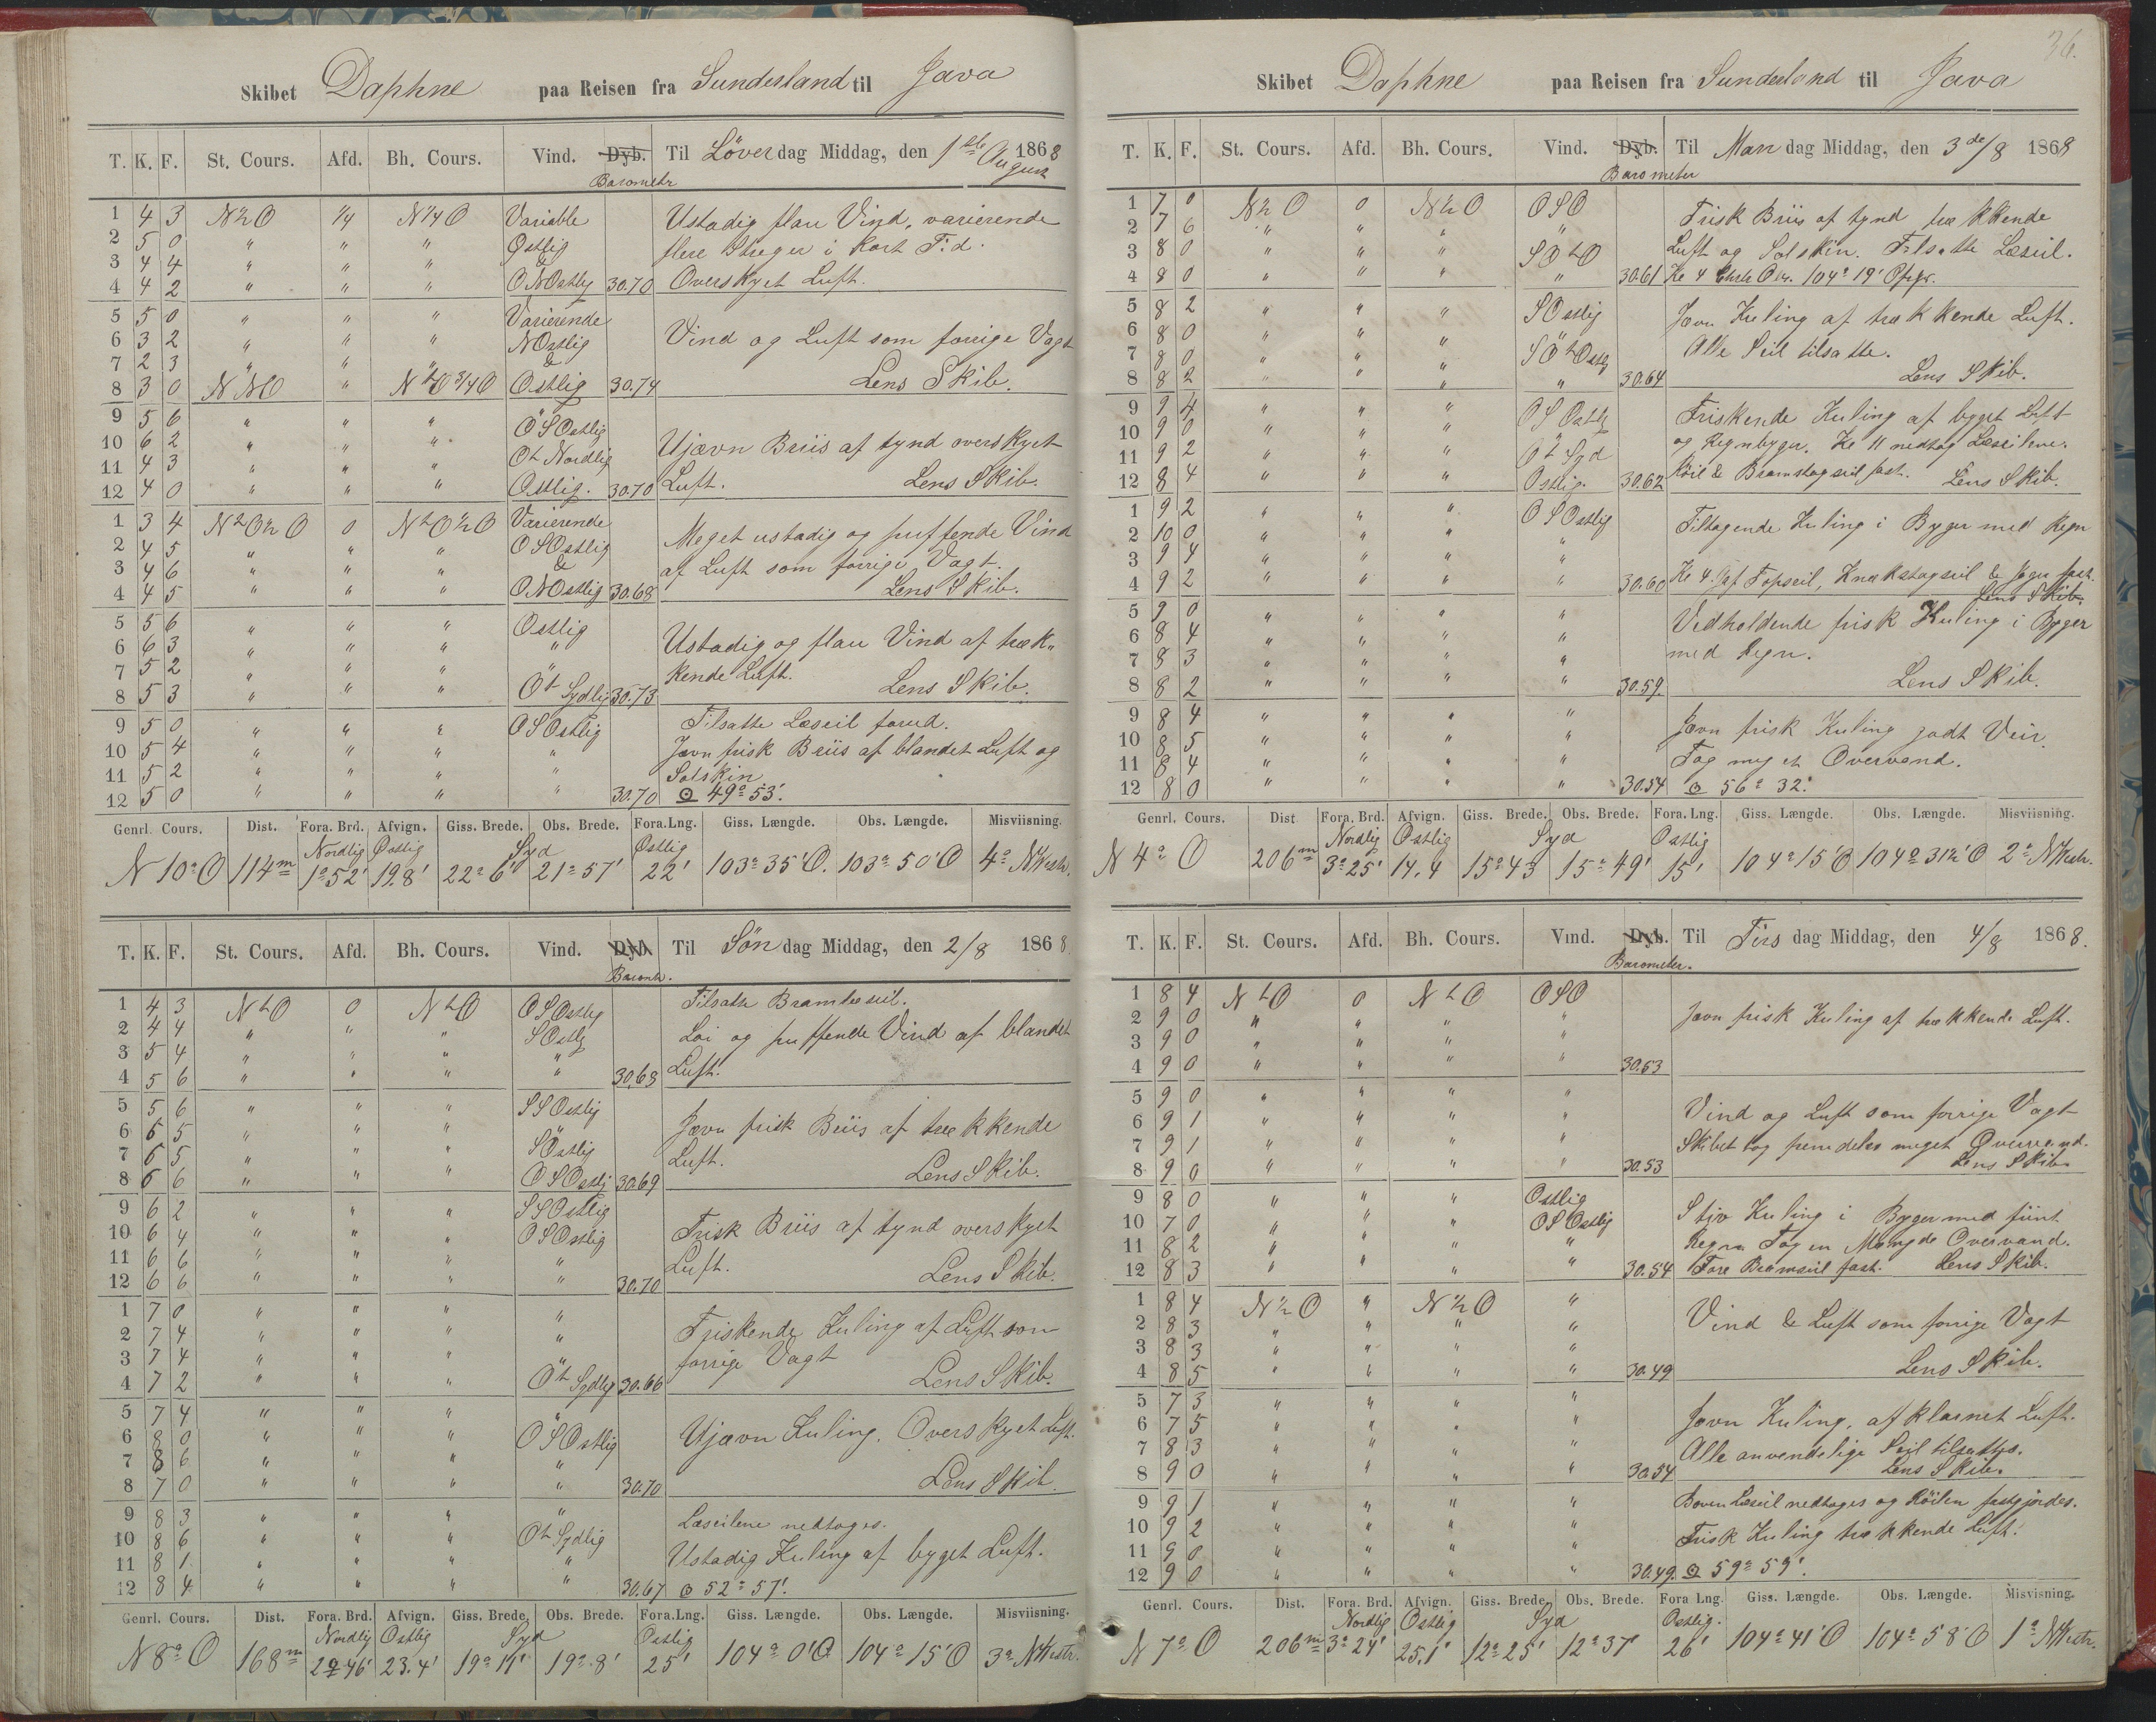 Skibet Daphne paa Reisen fra Sunderland til Java
T. K. F. St. Cours. Afd. Bh. Cours. Vind. Dyb. Til Löverdag Middag, den 1ste August 1868
Barometr
1 4 3 N½O ¼ N¼O Variable Ustadig flau Vind, varierende
2 5 0 " " " Østlig flere Streger i kort Tid.
3 4 4 " " " &
4 4 2 " " " ONOstlig 30.70 Overskyet Luft.
5 5 0 " " " Varierende
6 3 2 " " " NOstlig Vind og Luft som forrige Vagt
7 2 3 " " " &
8 3 0 NNO " NtO¾O Ostlig 30.74 Lens Skib.
9 5 6 " " " OSOstlig
10 6 2 " " " Ujævn Briis af tynd overskyet
11 4 3 " " " Ot Nordlig
12 4 0 " " " Ostlig. 30.70 Luft. Lens Skib.
1 3 4 NtO½O 0 NtO½O Varierende
2 4 5 " " " OSOstlig Meget ustadig og puffende Vind
3 4 6 " " " & af Luft som forrige Vagt.
4 4 5 " " " ONOstlig 30.68 Lens Skib.
5 5 6 " " " Ostlig
6 6 3 " " " " Ustadig og flau Vind af træk-
7 5 2 " " " kende Luft.
8 5 3 " " " Ot Sydlig 30.73 Lens Skib.
9 5 0 " " " OSOstlig Tilsatte Læseil forud.
10 5 4 " " " " Jævn frisk Briis af blandet Luft og
11 5 2 " " " " Solskin
12 5 0 " " " " 30.70 ⊙ 49° 53'.
Genrl. Cours. Dist. Fora. Brd. Afvign. Giss. Brede. Obs. Brede. Fora.Lng. Giss. Længde. Obs. Længde. Misviisning.
Nordlig Østlig Syd Østlig
N 10° O 114m 1°52' 19.8' 22°6' 21°57' 22' 103°35'O. 103°50'O 4° NWestr.
T. K. F. St. Cours. Afd. Bh. Cours. Vind. Dyb. Til Søndag Middag, den 2/8 1868.
Baromtr.
1 4 3 NtO 0 NtO OSOstlig Tilsatte Bramlæseil.
2 4 4 " " " SOstlig Løi og puffende Vind af blandet
3 5 4 " " " "
4 5 6 " " " " 30.63 Luft.
5 5 6 " " " SSOstlig
6 6 5 " " " Jævn frisk Briis af trækkende
7 6 5 " " " SOstlig Luft.
8 6 6 " " " OSOstlig 30.69 Lens Skib.
9 6 2 " " " SSOstlig
10 6 4 " " " OSOstlig Frisk Briis af tynd overskyet
11 6 6 " " " " Luft.
12 6 6 " " " " 30.70 Lens Skib.
1 7 0 " " " "
2 7 4 " " " " Friskende Kuling af Luft som
3 7 4 " " " forrige Vagt
4 7 2 " " " Ot Sydlig 30.66 Lens Skib.
5 7 4 " " "
6 8 0 " " " OSOstlig Ujævn Kuling. Overskyet Luft.
7 8 6 " " " "
8 7 0 " " " " 30.70 Lens Skib.
9 8 3 " " " " Læseilene nedtoges.
10 8 6 " " " Ot Sydlig
11 8 1 " " " " Ustadig Kuling af byget Luft.
12 8 4 " " " " 30.67 ⊙ 52° 57'.
Genrl. Cours. Dist. Fora. Brd. Afvign. Giss. Brede. Obs. Brede. Fora.Lng. Giss. Længde. Obs. Længde. Misviisning.
Nordlig Ostlig Syd Ostlig
N 8° O 168m 2°46' 23.4' 19°11' 19°8' 25' 104°0'O 104°15'O 3° NWestr.
36.
Skibet Daphne paa Reisen fra Sunderland til Java
T. K. F. St. Cours. Afd. Bh. Cours. Vind. Dyb. Til Mandag Middag, den 3de/8 1868
Barometer
1 7 0 N½O 0 N½O OSO Frisk Briis af tynd trækkende
2 7 6 " " " "
3 8 0 " " " SOtO Luft og Solskin. Tilsatte Læseil.
4 8 0 " " " " 30.61 Kl 4 104° 19'
5 8 2 " " " SOstlig Jævn Kuling af trækkende Luft.
6 8 0 " " "
7 8 0 " " " SOtOstlg Alle Seil tilsatte.
8 8 2 " " " " 30.64 Lens Skib.
9 9 4 " " " OSOstlg Friskende Kuling af byget Luft
10 9 0 " " " og Regnbyger. Kl 11 nedtog Læseilene.
11 9 2 " " " Ot Syd
12 8 4 " " " Ostlig. 30.62 Röil & Bramstagseil fast. Lens Skib.
1 9 2 " " " OSOstlig Tiltagende Kuling i Byger med Regn
2 10 0 " " " "
3 9 4 " " "
4 9 2 " " " " 30.60 Kl 4. Gaf Topseil, Knækstagseil & Jager fast.
Lens Skib.
5 9 0 " " " " Vedholdende frisk Kuling i Byger
6 8 4 " " " "
7 8 3 " " " " med Regn.
8 8 2 " " " " 30.59. Lens Skib.
9 8 4 " " " " Jævn frisk Kuling godt Veir.
10 8 5 " " " "
11 8 4 " " " " Tog meget Overvand.
12 8 0 " " " " 30.54 ⊙ 56° 32'.
Genrl. Cours. Dist Fora. Brd. Afvign. Giss. Brede. Obs. Brede. Fora.Lng. Giss. Længde. Obs. Længde. Misviisning.
Nordlig Ostlig Syd Ostlig
N 4° O 206m 3°25' 14.4 15°43 15°49' 15' 104°15'O 104°31½'O 2° NWestr.
T. K. F. St. Cours. Afd. Bh. Cours. Vind. Dyb. Til Tirsdag Middag, den 4/8 1868.
Barometer.
1 8 4 NtO 0 NtO OSO
2 9 0 " " " " Jævn frisk Kuling af trækkende Luft.
3 9 0 " " " "
4 9 0 " " " " 30.53
5 9 0 " " " "
6 9 1 " " " " Vind og Luft som forrige Vagt
7 9 1 " " " " Skibet tog fremdeles meget Overvand.
8 9 0 " " " " 30.53 Lens Skib.
9 8 0 " " " Ostlig
10 7 0 " " " OSOstlig Stiv Kuling i Byger med fiint
11 8 2 " " " " Regn. Tog en Mængde Overvand.
12 8 3 " " " " 30.54 Fore Bramseil fast. Lens Skib.
1 8 4 N½O " N½O "
2 8 3 " " " " Vind & Luft som forrige Vagt
3 8 3 " " " "
4 8 5 " " " " 30.49 Lens Skib.
5 7 3 " " " "
6 7 5 " " " " Jævn Kuling, af klarnet Luft.
7 8 3 " " " " Alle anvendelige Seil tilsattes.
8 9 0 " " " " 30.54 Lens Skib.
9 9 1 " " " " Boven Læseil nedtoges og Röilen fastgjordes.
10 9 2 " " " " Frisk Kuling trækkende Luft.
11 9 0 " " " "
12 9 0 " " " " 30.49. ⊙ 59° 59'.
Genrl. Cours. Dist. Fora. Brd. Afvign. Giss. Brede. Obs. Brede. Fora Lng. Giss. Længde. Obs. Længde. Misvisning.
Nordlig Ostlig Syd Ostlig.
N 7° O 206m 3°24' 25.1' 12°25' 12°37' 26' 104°41'O 104°58'O 1° NWestr.